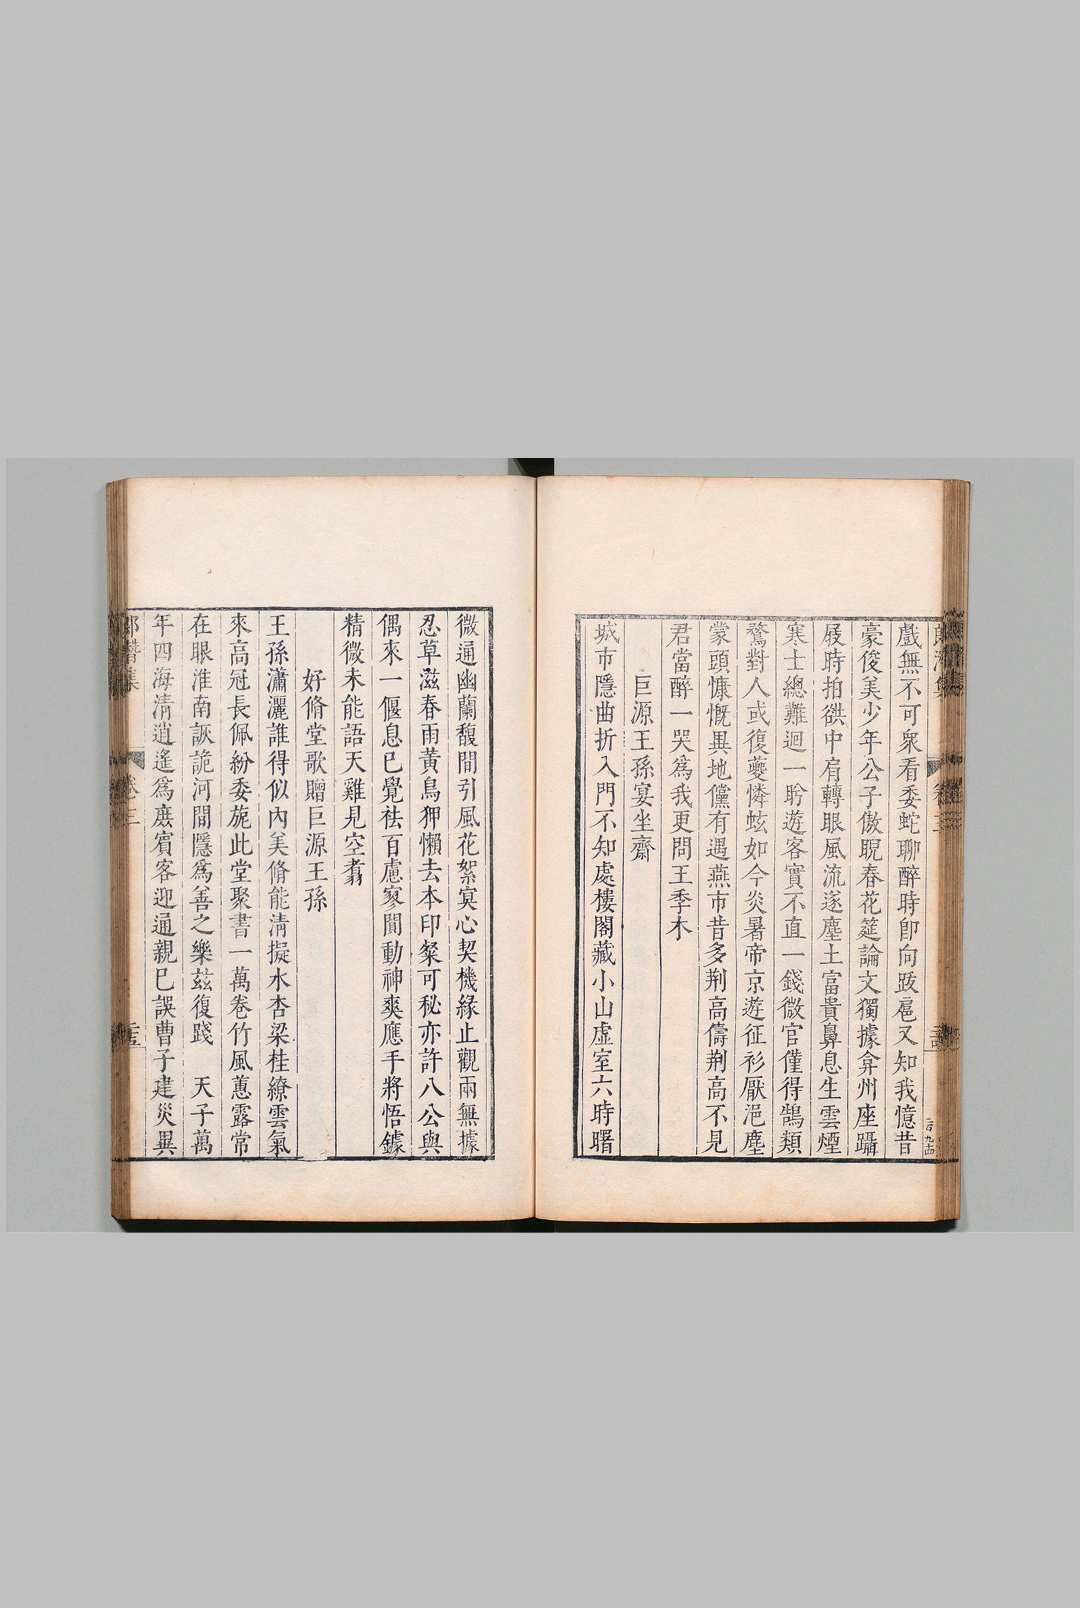 戲無不可衆看委蛇聊醉時卽向跋扈又知我憶昔
豪俊美少年公子傲睨春花筵論文獨據弇州座躡
屐時拍洪中肩轉眼風流逐塵土富貴鼻息生雲煙
寒士總難迴一盼遊客實不直一錢微官僅得鵠類
鶩對人或復夔憐蚿如今炎暑帝京遊征衫厭浥塵
蒙頭慷慨異地儻有遇燕市昔多荆高儔荆高不見
君當醉一哭爲我更問王季木
巨源王孫宴坐齋
城市隱曲折入門不知處樓閣藏小山虛室六時曙
微通幽蘭馥間引風花絮寘心契機緣止觀兩無據
忍草滋春雨黃鳥狎懶去本印粲可秘亦許八公與
偶來一偃息已覺祛百慮寥閴動神爽應手將悟鐻
精微未能語天雞見空翥
好脩堂歌贈巨源王孫
王孫瀟灑誰得似內美脩能清擬水杏梁桂繚雲氣
來高冠長佩紛委旎此堂聚書一萬卷竹風蕙露常
在眼淮南詼詭河間隱爲善之樂茲復踐 天子萬
年四海清逍遙爲庶賓客迎通親已誤曹子建災異
集
卷三